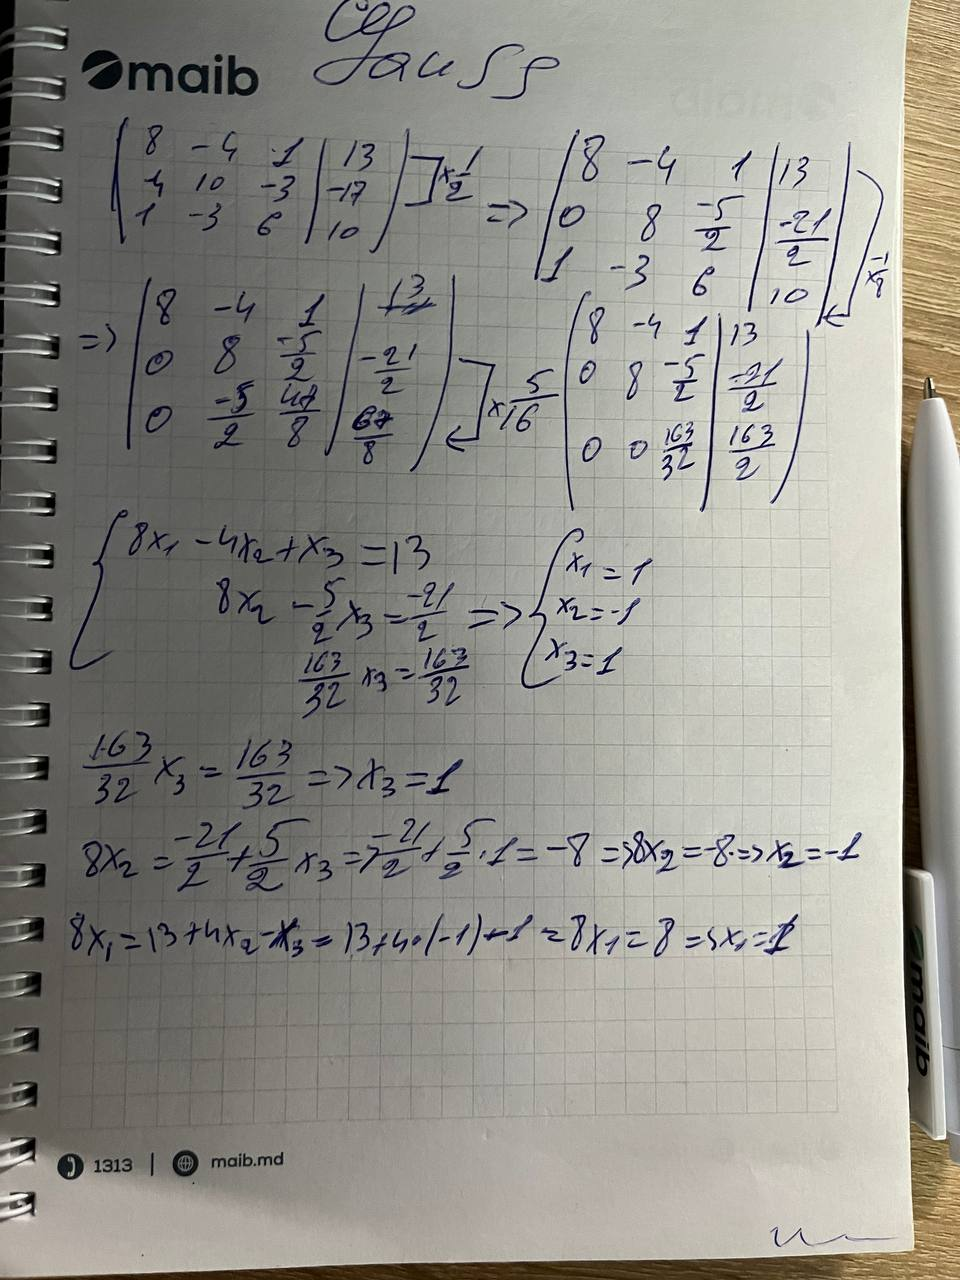 maib
Gauss
8 -4 1 | 13
-4 10 -3 | -17
1 -3 6 | 10
x 1/2
=>
8 -4 1 | 13
0 8 -5/2 | -21/2
1 -3 6 | 10
x -1/8
=>
8 -4 1 | 13
0 8 -5/2 | -21/2
0 -5/2 47/8 | 67/8
x 5/16
8 -4 1 | 13
0 8 -5/2 | -21/2
0 0 163/32 | 163/2
8x₁ - 4x₂ + x₃ = 13
8x₂ - 5/2 x₃ = -21/2
163/32 x₃ = 163/32
=>
x₁ = 1
x₂ = -1
x₃ = 1
163/32 x₃ = 163/32 => x₃ = 1
8x₂ = -21/2 + 5/2 x₃ => -21/2 + 5/2 · 1 = -8 => 8x₂ = -8 => x₂ = -1
8x₁ = 13 + 4x₂ - x₃ = 13 + 4 · (-1) - 1 = 8x₁ = 8 => x₁ = 1
1313 | maib.md
maib